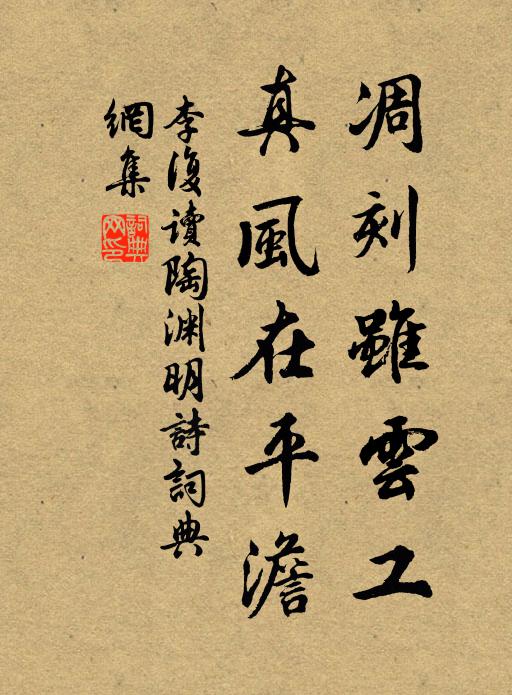 凋刻雖雲工
真風在平澹
李復讀陶渊明詩詞典
網集
詞典
网印